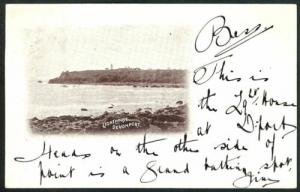 Bess
This is
the Lt House
at D'port
LIGHTHOUSE
DEVONPORT
Heads on the other side of
point is a Grand bathing spot.